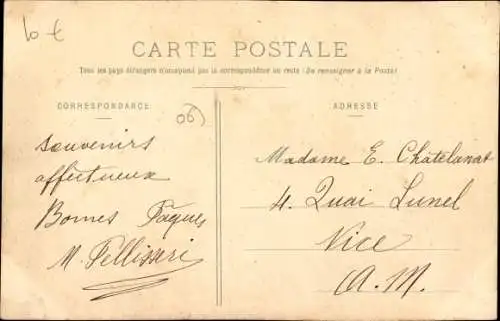 10 €
CARTE POSTALE
Tous les pays étrangers n'acceptent pas la correspondance au recto (Se renseigner à la Poste)
CORRESPONDANCE
ADRESSE
06)
souvenirs
affectueux
Bonnes Pâques
M. Pellisseri
Madame E. Châtelanat
4. Quai Lunel
Nice
A. M.